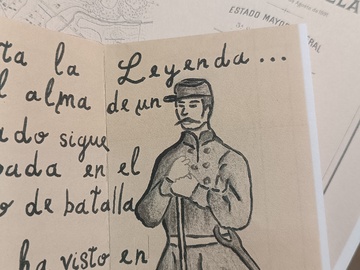 ta la Leyenda...
l alma de un
ado sigue
pada en el
o de batalla
ha visto en
ESTADO MAYOR